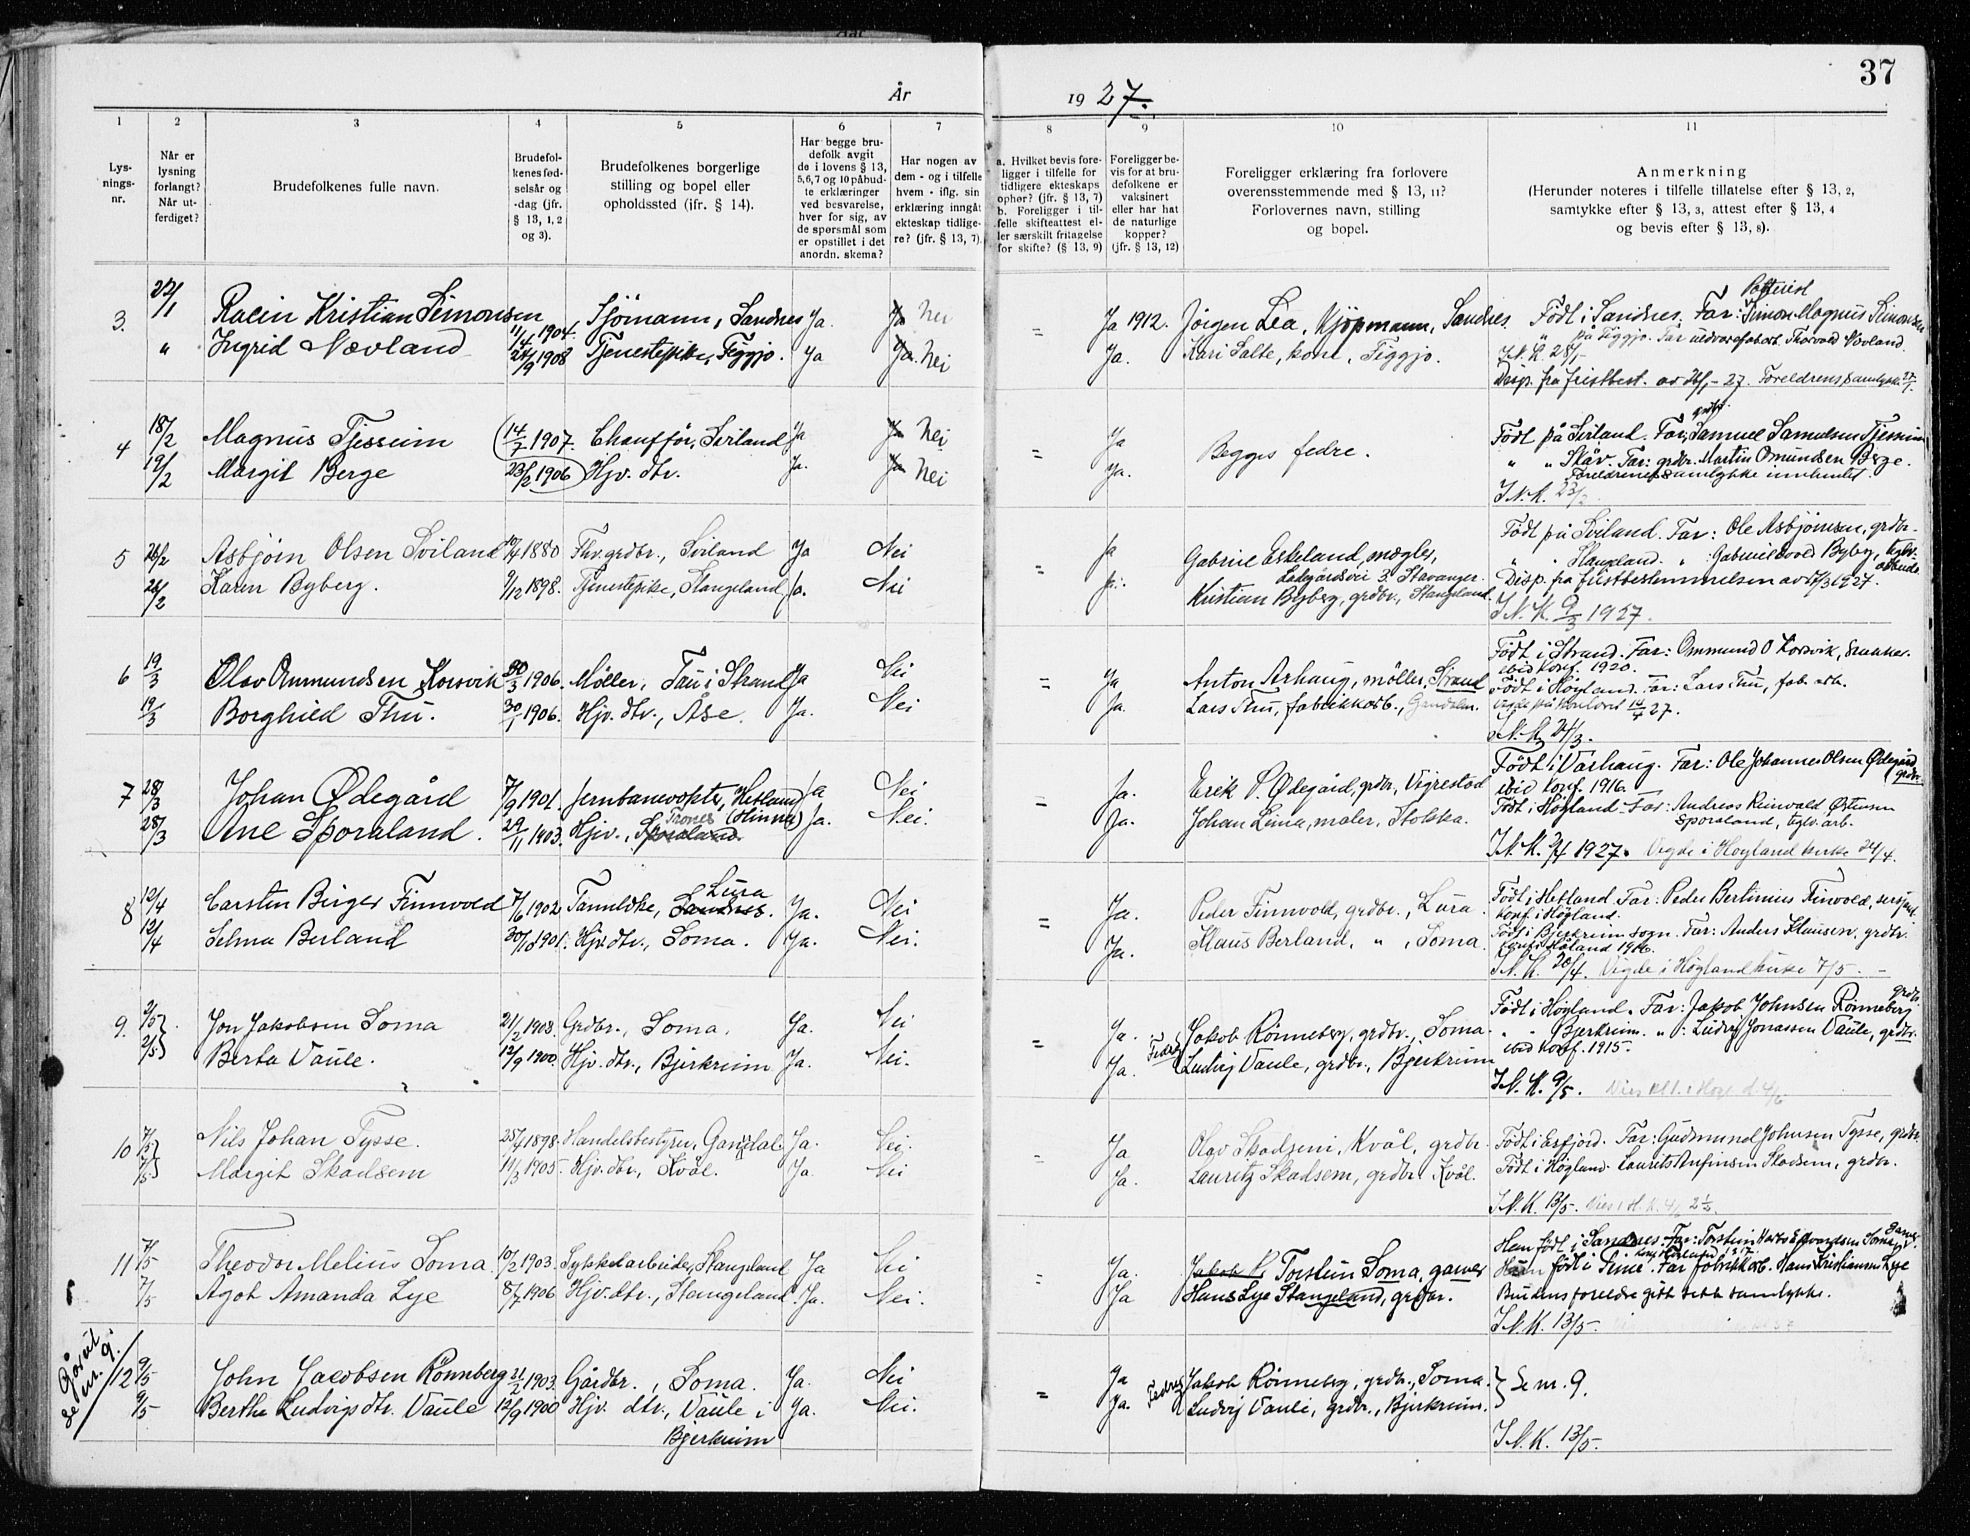 37
År 1927.
1 2 3 4 5 6 7 8 9 10 11
Lys-
nings-
nr.
Når er
lysning
forlangt?
Når ut-
ferdiget?
Brudefolkenes fulle navn.
Brudefol-
kenes fød-
selsår og
-dag (jfr.
§ 13, 1, 2
og 3).
Brudefolkenes borgerlige
stilling og bopel eller
opholdssted (ifr. § 14).
Har begge bru-
defolk avgit
de i lovens § 13,
5,6,7 og 10 påbud-
te erklæringer
ved besvarelse,
hver for sig, av
de spørsmål som
er opstillet i det
anordn. skema?
Har nogen av
dem - og i tilfelle
hvem - iflg. sin
erklæring inngåt
ekteskap tidlige-
re? (jfr. § 13, 7).
a. Hvilket bevis fore-
ligger i tilfelle for
tidligere ekteskaps
ophør? (jfr. § 13, 7)
b. Foreligger i til-
felle skifteattest el-
ler særskilt fritagelse
for skifte? (§ 13, 9)
Foreligger be-
vis for at bru-
defolkene er
vaksinert
eller har hat
de naturlige
kopper?
(jfr. § 13, 12)
Foreligger erklæring fra forlovere
overensstemmende med § 13, 11?
Forlovernes navn, stilling
og bopel.
Anmerkning
(Herunder noteres i tilfelle tillatelse efter § 13, 2,
samtykke efter § 13, 3, attest efter § 13, 4
og bevis efter § 13, 8).
3. 22/1 Kristian Simonsen 11/4 1904. Sjømann, Sandnes Ja. Ja Nei = Ja 1912. Jørgen Lea, Kjøpmann, Sandnes. Født i Sandnes. Far: Simon Magnus Simonsen
" Ingrid Nævland 24/9 1908 Tjenestepike, Figgjo. Ja Ja. Nei Ja. Kari Salte, kone, Figgjo. " på Figgjo. Far Thorvald Nævland.
I.N.K. 28/1
Disp. fra fristbest. av 26/1-27. Foreldrens samtykke 27/1.
4 18/2 Magnus Tjessem 14/7 1907. Chauffør, Sviland Ja Ja Nei = Ja Begges fedre. Født på Sviland. Far, grdbr. Samuel Samuelsen Tjessem
19/2 Margit Berge 23/2 1906 Hjv. dtr. Ja. Ja Nei Ja. " " Far: grdbr. Martin Omundsen Berge.
Foreldrenes samtykke innhentet.
I.N.K. 23/2.
5 26/2 Asbjørn Olsen Sviland 1880 Fhv. grdbr., Sviland Ja Nei = Ja Gabriel Eskeland, mægler, Født på Sviland. Far: Ole Asbjørnsen, grdbr.
Ladegårdsvei 3. Stavanger.
26/2 Karen Byberg. 9/12 1898. Tjenestepike, Stangeland, Ja. Nei Ja. Kristian Byberg, grdbr., Stangeland. " Stangeland. " Byberg,
Disp. fra fristbestemmelsen av 1927.
I.N.K. 9/3 1927.
6 19/3 Olav Ommundsen Korsvik 30/3 1906. Møller, Tau i Strand Ja Nei = Ja Anton Arhaug, møller, Strand Født i Strand. Far: Ommund O Korsvik, snekker.
ibid konf. 1920.
19/3 Borghild Thu. 30/1 1906. Hjv. dtr., Åse. Ja. Nei Ja. Lars Thu, fabrikkarb., Gandalen. Født i Høyland. Far: Lars Thu, fab. arb.
27.
I.N.K. 24/3.
7 28/3 Johan Ødegård 7/9 1901. Jernbanevokter, Hetland Ja Nei = Ja. Erik P. Ødegård, grdbr, Vigrestad Født i Varhaug. Far: Ole Johannes Olsen Ødegård, grdbr.
(Hinna) ibid konf. 1916.
28/3 Ane Sporaland. 29/11 1903. Hjv., Sporaland Ja. Nei. Ja. Johan Lima, maler, Stokka. Født i Høyland. Far: Andreas Reinvald Østensen
Sporaland, teglv. arb.
I.N.K. 1927. Vigde i Høyland kirke 24/4.
8 12/4 Carsten Birger Finnvold 7/6 1902 Tannlæge, Lura Sandnes. Ja. Nei = Ja. Peder Finnvold, grdbr., Lura. Født i Hetland. Far: Peder Bertinius Finvold, sersjant.
konf. i Høyland.
12/4 Selma Berland 1901. Hjv. dtr., Soma. Ja. Nei. Ja. Klaus Berland, " , Soma. Født i Bjerkreim sogn. Far: Anders Klausen, grdbr.
1916.
I.N.K. 20/4. Vigde i Høyland kirke 7/5.
9. 2/5 Jon Jakobsen Soma 21/2 1903. Grdbr., Soma. Ja. Nei = Ja. Fedre Jakob Rønneberg, grdbr., Soma. Født i Høyland. Far: Jakob Johnsen Rønneberg grdbr.
2/5 Berta Vaule. 12/9 1900. Hjv. dtr., Bjerkreim Ja. Nei. Ja. Ludvig Vaule, grdbr., Bjerkreim " " Bjerkreim. " : Ludvig Jonassen Vaule, grdbr.
ibid konf. 1915.
I.N.K. 9/5.
10 7/5 Nils Johan Tysse. 25/4 1898. Handelsbestyrer, Gandal. Ja. Nei. = Ja Olav Skadsem, Kvål, grdbr. Født i . Far: Gudmund Johnsen Tysse, grdbr.
7/5 Margit Skadsem 11/3 1905. Hjv. dtr, Kvål. Ja. Nei Ja. Lauritz Skadsem, grdbr. Kvål. Født i Høyland. Laurits Anfinsen Skadsem, grdbr.
I.N.K. 13/5.
11 7/5 Theodor Melius Soma 10/2 1903. Sykkelarbeider, Stangeland Ja Nei = Ja. Jakob P. Torstein Soma, garver Han født i Sandnes. Far: Torstein Soma, garver.
7/5 Agot Amanda Lye 8/7 1906 Hjv. dtr., Stangeland. Ja. Nei. Ja Hans Lye Stangeland, grdbr. Hun født i Time. Far fabrikkarb. Hans Kristiansen Lye
Brudens foreldre gitt sitt samtykke.
I.N.K. 13/5.
Går ut
se nr. 9.
12 9/5 John Jacobsen Rønneberg 21/2 1903. Gårdbr., Soma. Ja. Nei = Ja Fedre Jakob Rønneberg, grdbr., Soma. Se nr. 9.
9/5 Berthe Ludvigsdtr. Vaule 12/9 1900 Hjv. dtr., Vaule i Ja. Nei. Ja. Ludvig Vaule, grdbr., Bjerkreim.
Bjerkreim I.N.K. 13/5.